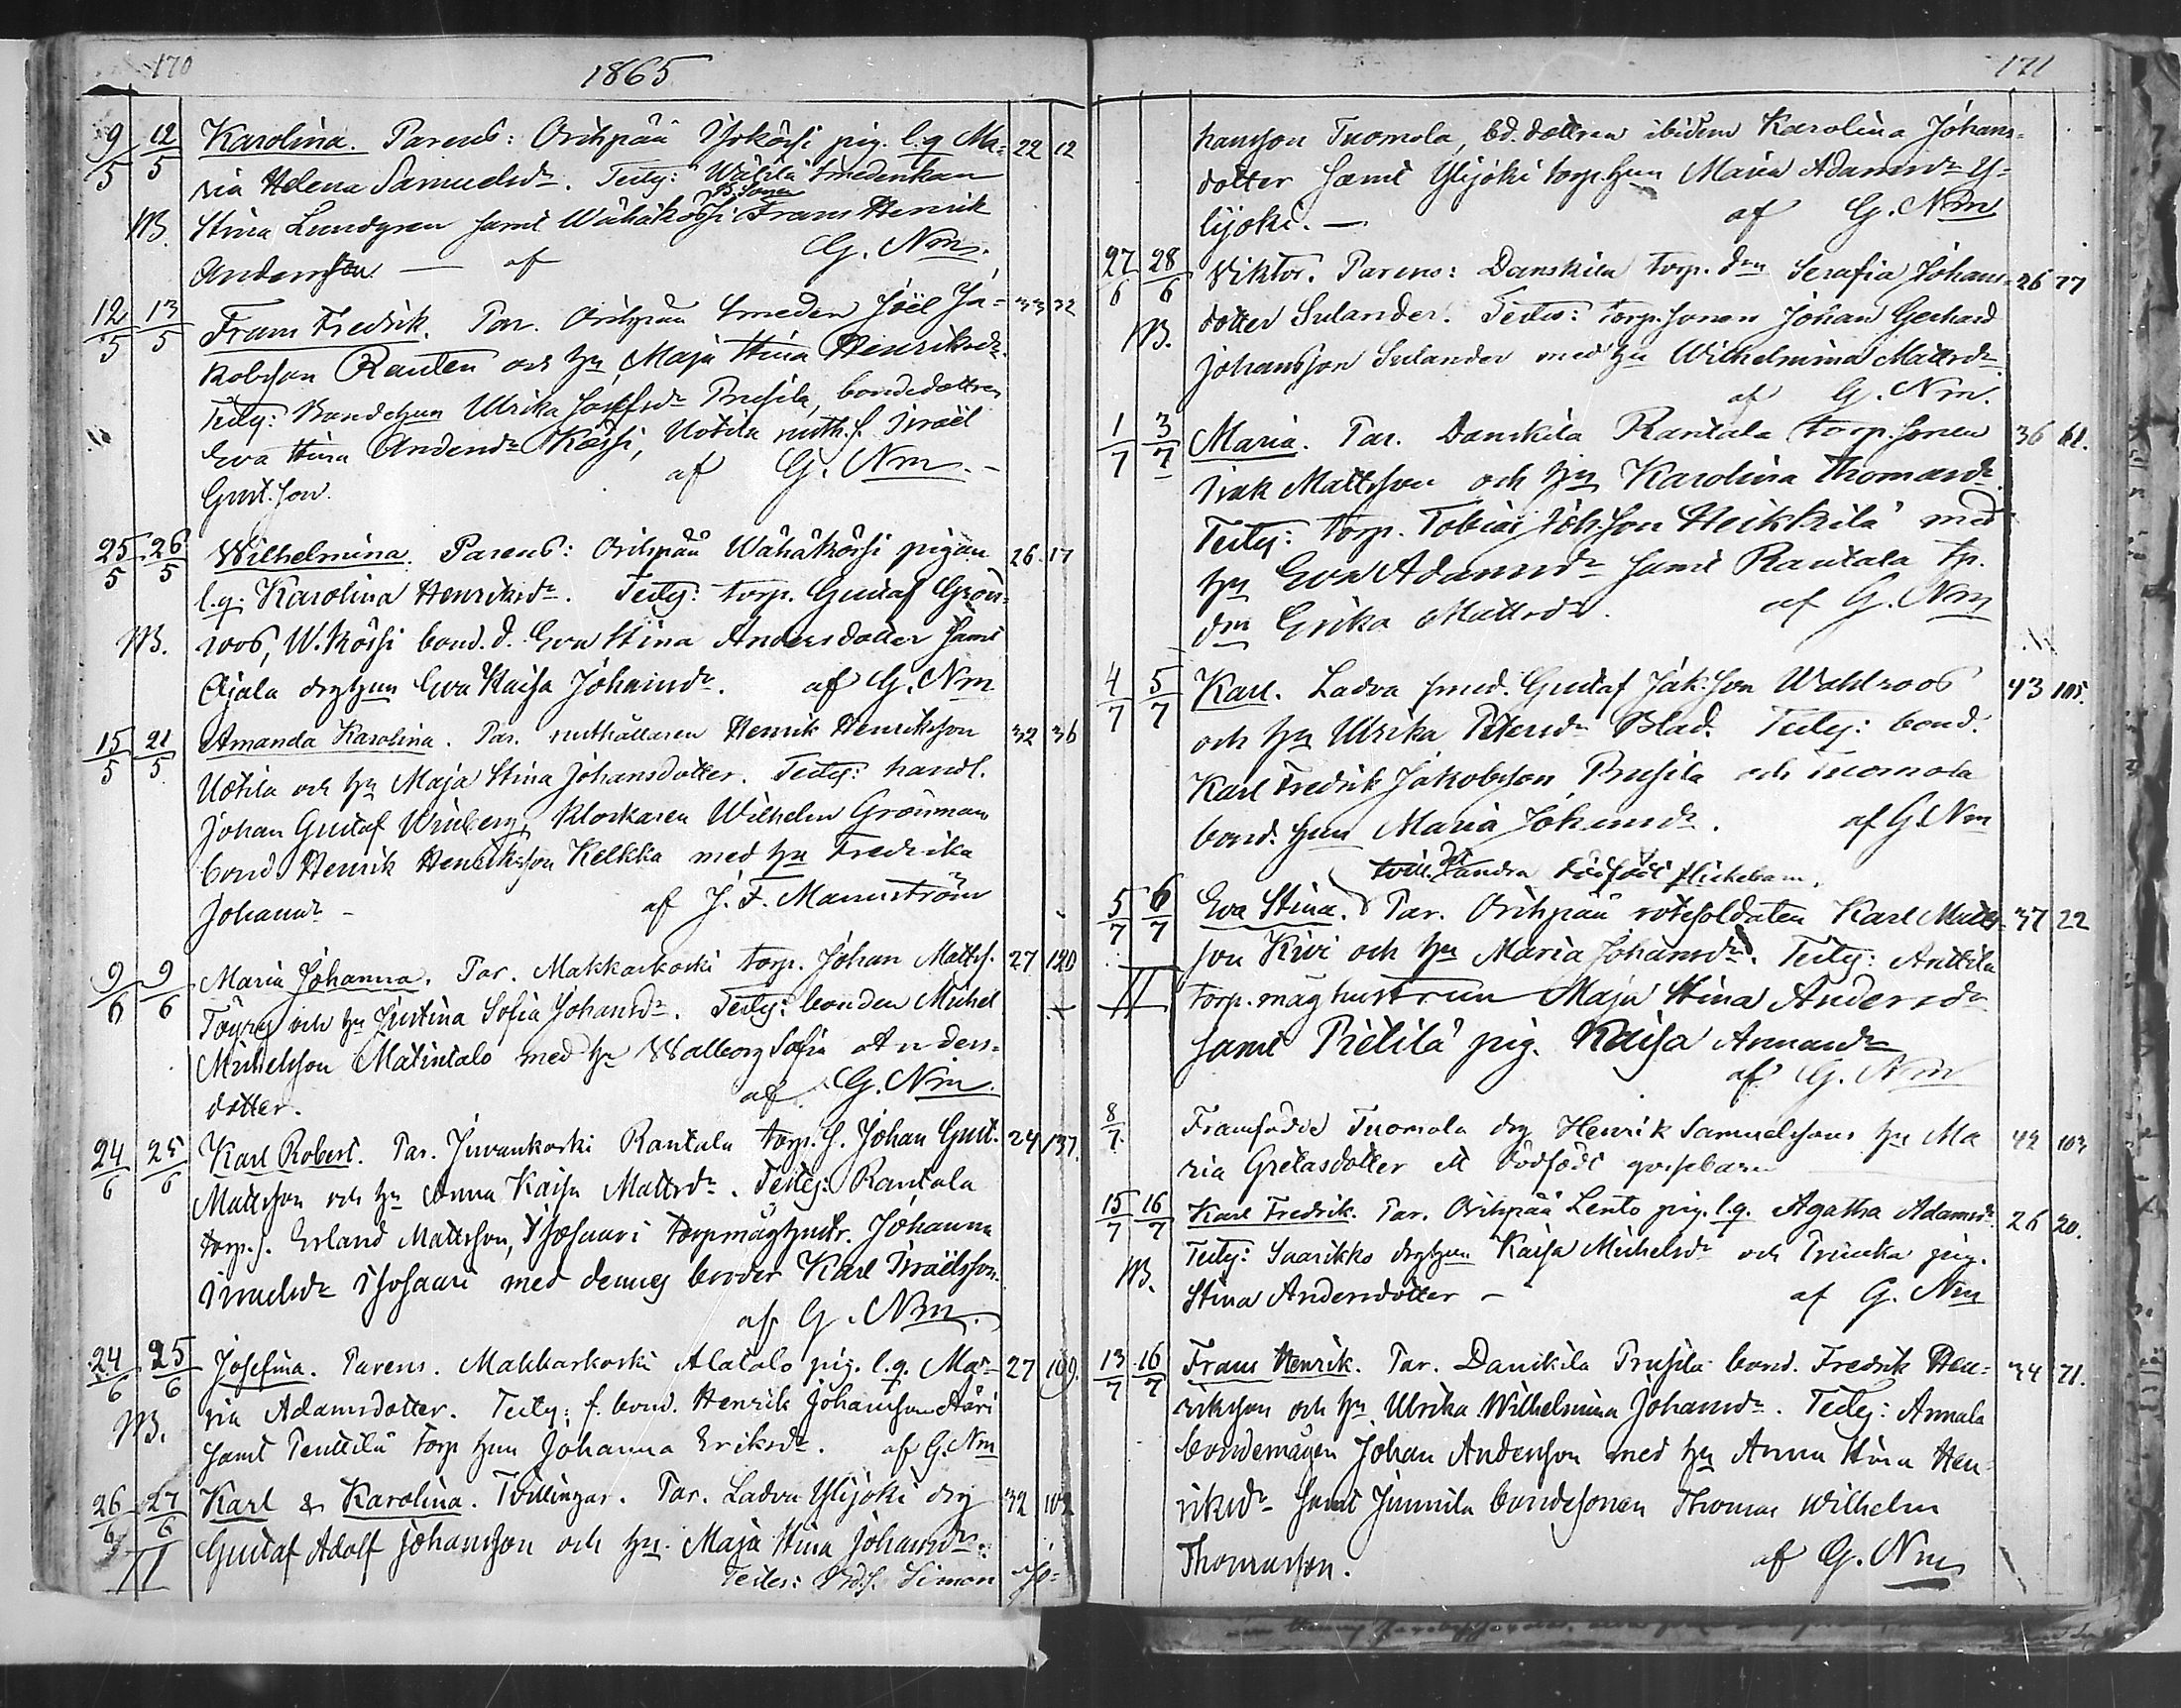 170
1865
9/5 12/5 Karolina. Parens: Orihpää Isokörsi pig. l.q. Ma= 22 12
ria Helena Samuelsdr. Testes: Wälilä smedenkan
B. sonen
M. Stina Lundgren samt Wähäkörsi Frans Henrik
Andersson — af G. Nm.
12/5 13/5 Frans Fredrik. Par. Orihpää Smeden Joël Ja= 33 32
kobsson Ranten och hu Maja Stina Henriksdr.
Testg: Bondehun Ulrika Josefsdr Prusila, bondedottren
Eva Stina Andersdr Körsi, Uotila rusth. s. Israël
Gust.son. af G. Nm. -
25/5 26/5 Wilhelmina. Parens: Orihpää Wähäkörsi pigan 26 17
l.q. Karolina Henriksdr. Testg: torp. Gustaf Grön=
M. roos, W. Körsi bond. d. Eva Stina Andersdotter samt
Ojala drghun Eva Kaisa Johansdr. af G. Nm
15/5 21/5 Amanda Karolina. Par. rusthållaren Henrik Henriksson 32 36
Uotila och hu Maja Stina Johansdotter. Testg: handl.
Johan Gustaf Winberg, Klockaren Wilhelm Grönman
bond Henrik Henriksson Kelkka med hu Fredrika
Johansdr - af J. F. Mannström
9/6 9/6 Maria Johanna. Par. Makkarkoski torp. Johan Matts. 27 120
Töyry och hu Justina Sofia Johansdr. Testg: bonden Michel
Michelsson Matintalo med hu Walborg Sofia Anders=
dotter. af G. Nm.
24/6 25/6 Karl Robert. Par. Juvankoski Rantala torp. s. Johan Gust. 24 137.
Mattsson och hu Anna Kaisa Mattsdr. Testg: Rantala
torp. s. Erland Mattsson, Isosaari torpmåghustr. Johanna
Israelsdr Isosaari med dennes broder Karl Israëlsson.
af G. Nm.
24/6 25/6 Josefina. Parens. Makkarkoski Alatalo pig. l.q. Ma= 27 109.
M. ria Adamsdotter. Testg: f. bond. Henrik Johansson Ääri
samt Penttilä torp hun Johanna Eriksdr. af G. Nm
26/6 27/6 Karl & Karolina. Tvillingar. Par. Ladva Ylijoki drg 32 102
Gustaf Adolf Johansson och hu. Maja Stina Johansdr.
II Testes: Bd.s. Simon Jo=
171
hansson Tuomola, bd. dottren ibidem Karolina Johans=
dotter samt Ylijoki torp.hun Maria Adamsdr Y=
lijoki. — af G. Nm
27/6 28/6 Viktor. Parens: Danskila torp. dm Serafia Johans= 26 77
M. dotter Sulander. Testes: torp.sonen Johan Gerhard
Johansson Sulander med hu Wilhelmina Mattsdr.
af G. Nm.
1/7 3/7 Maria. Par. Danskila Rantala torp.sonen 36 61.
Isak Mattsson och hu Karolina Thomasdr.
Testg: torp. Tobias Joh.son Heikkilä med
hu Eva Adamsdr samt Rantala tp.
dm Erika Mattsdr. af G. Nm
4/7 5/7 Karl. Ladva smed. Gustaf Jak.son Wahlroos 43 105.
och hu Ulrika Petersdr Blad. Testg: bond.
Karl Fredrik Jakobsson Prusila och Tuomola
bond. hun Maria Johansdr. af G. Nm
tvill. Det andra dödfödt flickebarn.
5/7 6/7 Eva Stina. Par. Orihpää rotesoldaten Karl Matts= 37 22
son Kivi och hu Maria Johansdr. Testg: Anttila
II torp.måghustrun Maja Stina Andersdr
samt Pietilä pig. Kaisa Annasdr
af G. Nm
8/7. Framfödde Tuomola drg Henrik Samuelssons hu Ma 42 103
ria Gretasdotter ett dödfödt gossebarn
15/7 16/7 Karl Fredrik. Par. Orihpää Lento pig. l.q. Agatha Adamsdr. 26 20.
M. Testg: Saarikko drghun Kaisa Michelsdr och Prinkka pig.
Stina Andersdotter - af G. Nm
13/7 16/7 Frans Henrik. Par. Danskila Prusila bond. Fredrik Hen= 34 71.
riksson och hu Ulrika Wilhelmina Johansdr. Testg: Annala
bondemågen Johan Andersson med hu Anna Stina Hen=
riksdr samt Junnila bondesonen Thomas Wilhelm
Thomasson. af G. Nm